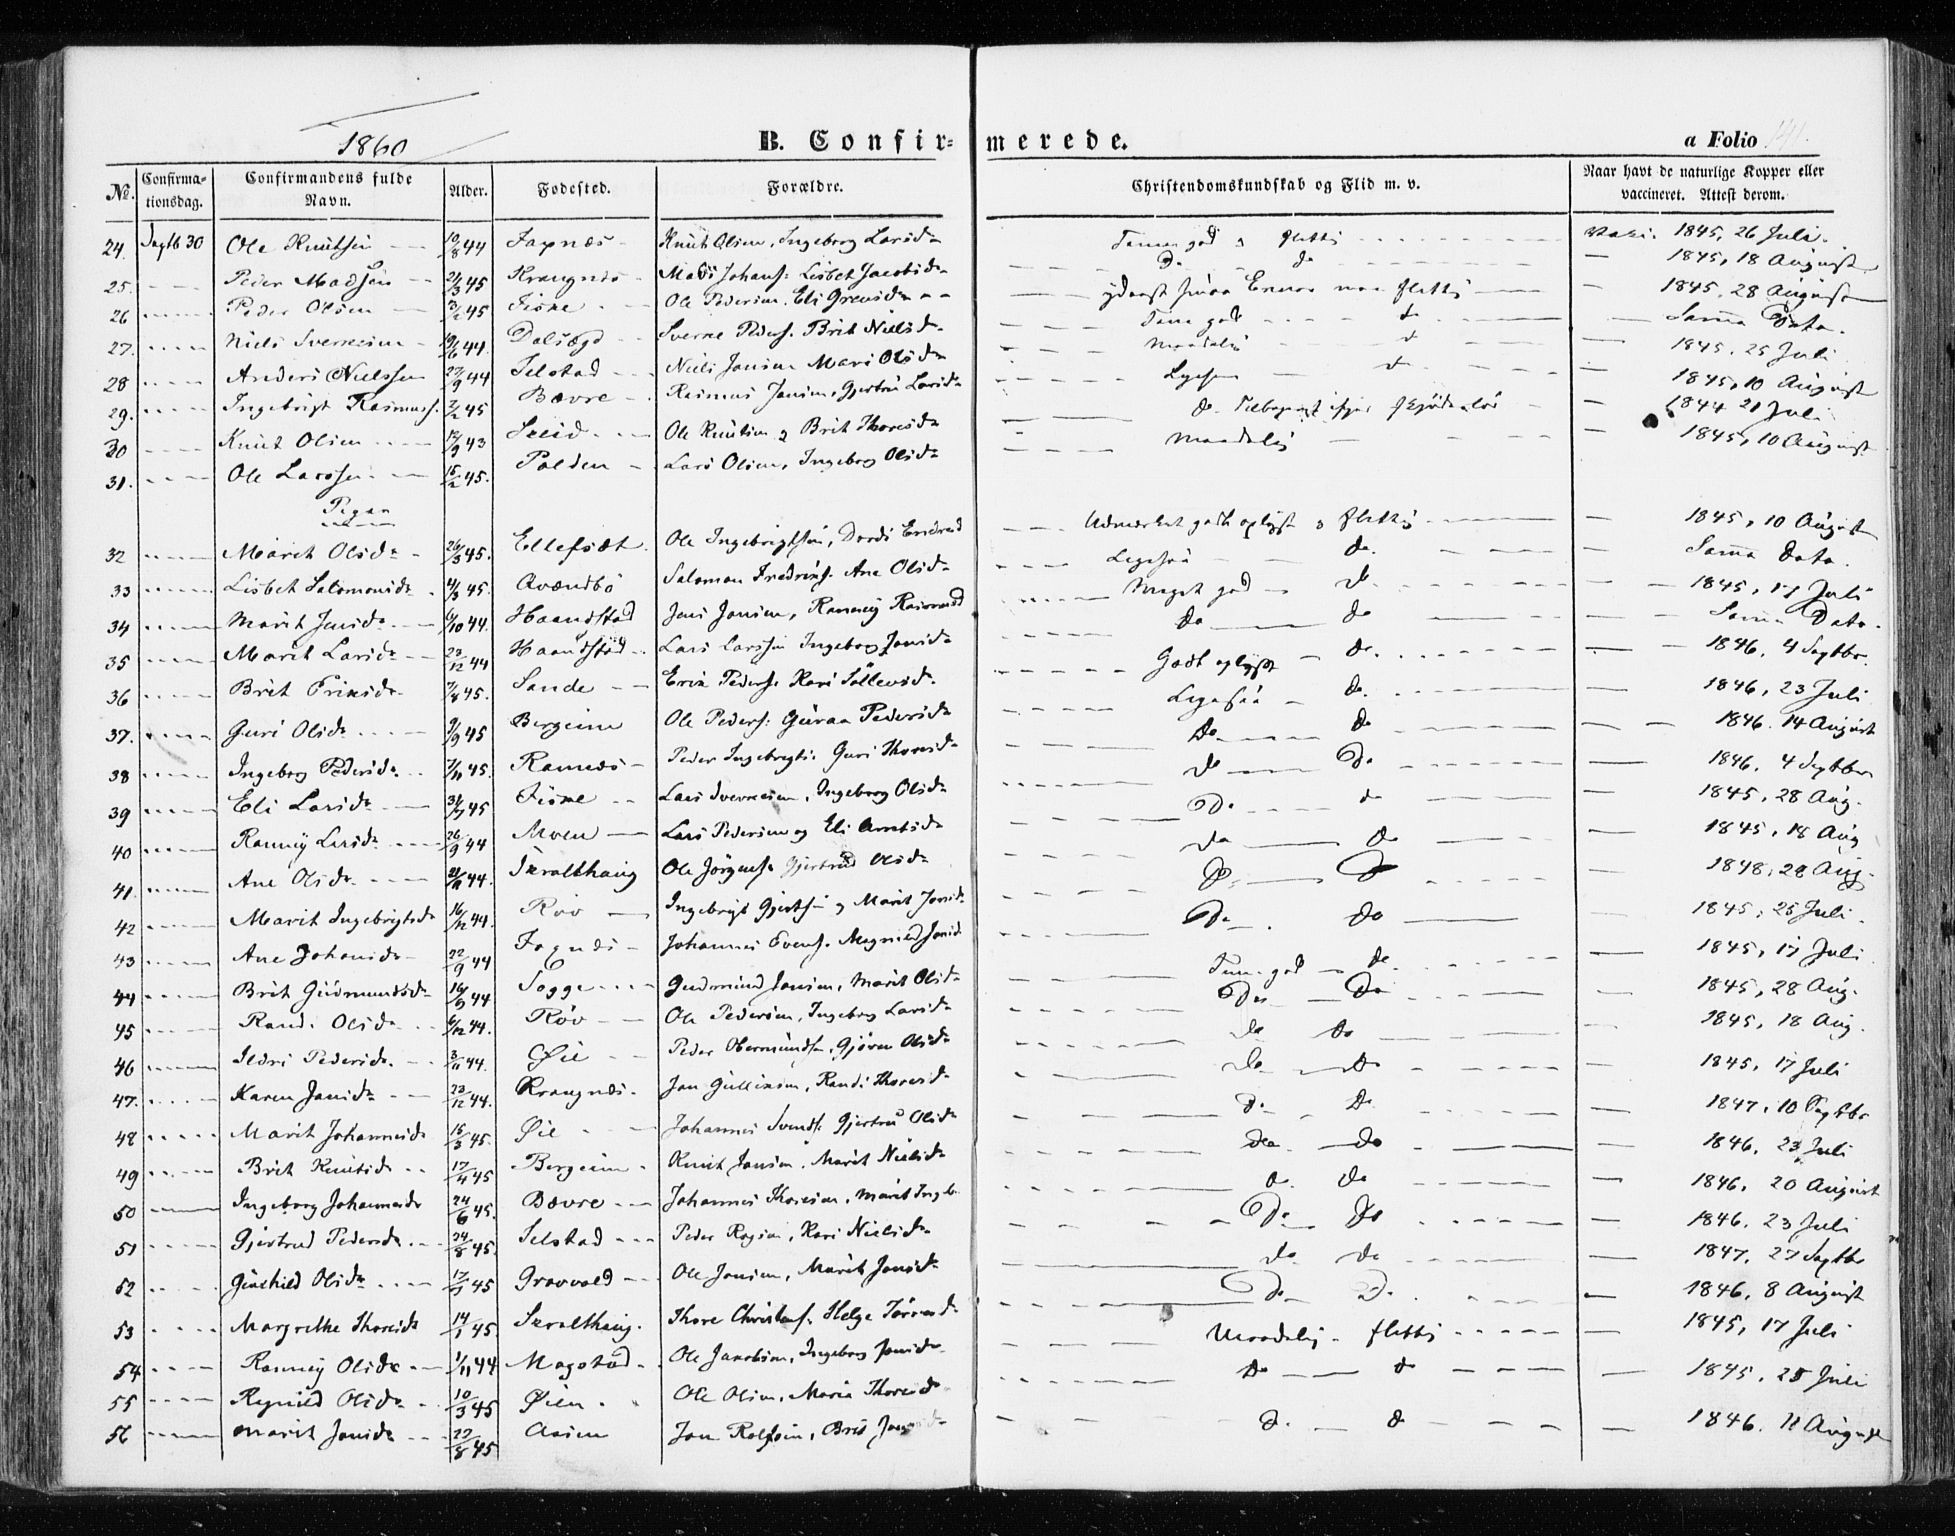 1860 B. Confir= merede. a Folio 141.
No. Confirma-tionsdag. Confirmandens fulde Navn. Alder. Fødested. Forældre. Christendomskundskab og Flid m. v. Naar havt de naturlige Kopper eller vaccineret. Attest derom.
24. Septb 30 Ole Knutsen 10/8 44 Knut Olsen, Ingeborg Larsdr 1845, 26 Juli.
25. Peder Madsen 21/3 45 Krangnes Mads Johans: Lisbet Jacobsdr Do do 1845, 18 August
26 Peder Olsen 3/2 45 Fiske Ole Pedersen, Eli 1845, 28 August
27. Niels Sverkesen 19/6 44 Dalsægg Sverke Peders. Brit Nielsdr Samma Dato.
28 Anders Nielssen 27/9 44 Selstad Niels Jonsen Mari Olsdr maadelig 1845, 25 Juli
29. Ingebrigt Rasmuss. 7/2 45 Bævre Rasmus Jonsen, Gjertru Larsdr 1845, 10 August
30 Knut Olsen 12/9 43 Ole Knutsen og Brit Thoresdr do 1844 21 Juli
31. Ole Larssen 15/2 45. Polden Lars Olsen, Ingeborg Olsdr Maadelig 1845, 10 August
Piger
32 Marit Olsdr 26/3 45. Ellefsæt Ole Ingebrigtsen, Dordi Udmærket godt oplyst og flittig 1845, 10 August
33 Lisbet Salomonsdr 4/3 45. Qvændbø Salomon Fredriks. Ane Olsdr Ligesaa do. Samma Dato.
34 Marit Jensdr 6/10 44. Haandstad Jens Jonsen, Ranney Meget god do. 1845, 17 Juli
35 Marit Larsdr 23/12 44 Haandstad Lars Larssen Ingeborg Jonsdr do do Samma Dato.
36 Brit Eriksdr 7/8 45. Sande Erik Peders. Kari Godt oplyst do. 1846, 4 Septbr.
37. Guri Olsdr 9/9 45 Bergeim Ole Peders: Guraa Pedersdr Ligesaa do. 1846, 23 Juli
38 Ingeborg Pedersdr 7/11 45. Ramnes Peder Ingebrigts. Guri Thoresdr Do do 1846. 14 August
39 Eli Larsdr 45 Fiske Lars Sverkesen, Ingeborg Olsdr do Do 1846, 4 Septbr
40 Ranney Larsdr 26/9 44 Moen Lars Pedersen og Eli Arntsdr Do do 1845, 28 Aug.
41. Ane Olsdr 44. Skralthaug Ole Jørgens. Gjertrud Olsdr do do 1845, 18 Aug
42 Marit Ingebrigtsdr 16/12 44. Røv Ingebrigt Gjertsen og Marit Jonsdr Do. Do 1848, 28 Aug.
43 Ane Johansdr 22/9 44 Johannes Evens. Magnild Jonsdr Do. Do 1845, 25 Juli.
44 Brit Gudmundsdr 16/9 44 Sogge Gudmund Jonsen, Marit Olsdr god do. 1845, 17 Juli
45 Randi Olsdr 6/12 44. Røv Ole Pedersen, Ingeborg Larsdr Do Do 1845, 28 Aug.
46 Ildri Pedersdr. 3/11 44. Øie Peder Gjøren Olsdr do do 1845, 18 Aug.
47. Karen Jonsdr 23/12 44. Krangnes. Jon Gullikson, Randi Thoresdr do do 1845, 17 Juli
48 Marit Johannesdr 15/3 45. Øie Johannes Svends. Gjertru Olsdr Do Do 1847, 10 Septbr
49 Brit Knutsdr 17/4 45 Bergeim Knut Jonsen, Marit Nielsdr do do 1846, 23 Juli
50 Ingeborg Johannesdr 24/6 45. Bævre Johannes Thoresen, Marit Ingb. do. do 1846, 20 August
51 Gjertrud Pedersdr 24/8 45. Selstad Peder Kari Nielsdr Do Do 1846, 23 Juli
52 Gunhild Olsdr 45 Grøvvold Ole Jonsen, Marit Jonsdr do do 1847, 27 Septbr
53 Margrethe Thoresdr 14/1 45. Skralthaug. Thore Christens. Helge Do Do 1846, 8 August
54 Ranney Olsdr 1/11 44 Magstad Ole Jakobsen, Ingeborg Jonsdr Maadelig flittig 1845, 17 Juli
55 Ragnild Olsdr 10/3 45 Øien Ole Olsen, Maria Thoresdr do do 1845, 25 Juli
56 Marit Jonsdr 27/8 45 Aasen Jon Rolfsen, Brit do. do 1846. 11 August